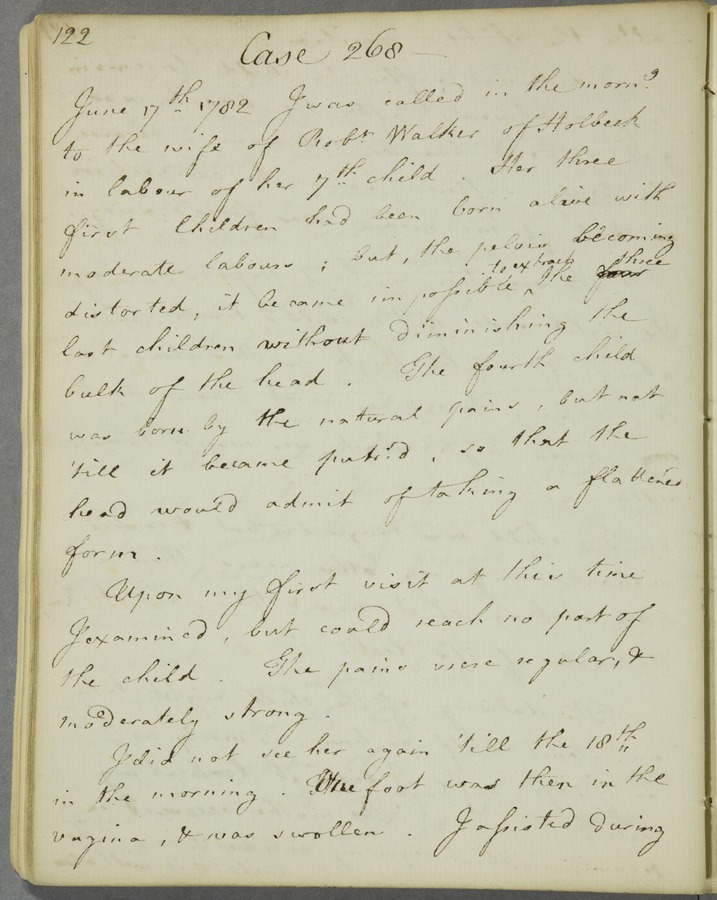 122
Case 268
June 17th 1782 I was called in the morng
to the wife of Robt Walker of Holbeck
in labour of her 7th child. Her three
first Children had been born alive with
moderate labours; but, the pelvis becoming
to extract three
distorted, it became impossible ^ the four
last children without diminishing the
bulk of the head. The fourth child
was born by the natural pains, but not
'till it became putrid, so that the
head would admit of taking a flattened
form.
Upon my first visit at this time
I examined, but could reach no part of
the child. The pains were regular, &
moderately strong.
I did not see her again 'till the 18th
in the morning. One foot was then in the
vagina, & was swollen. I assisted during